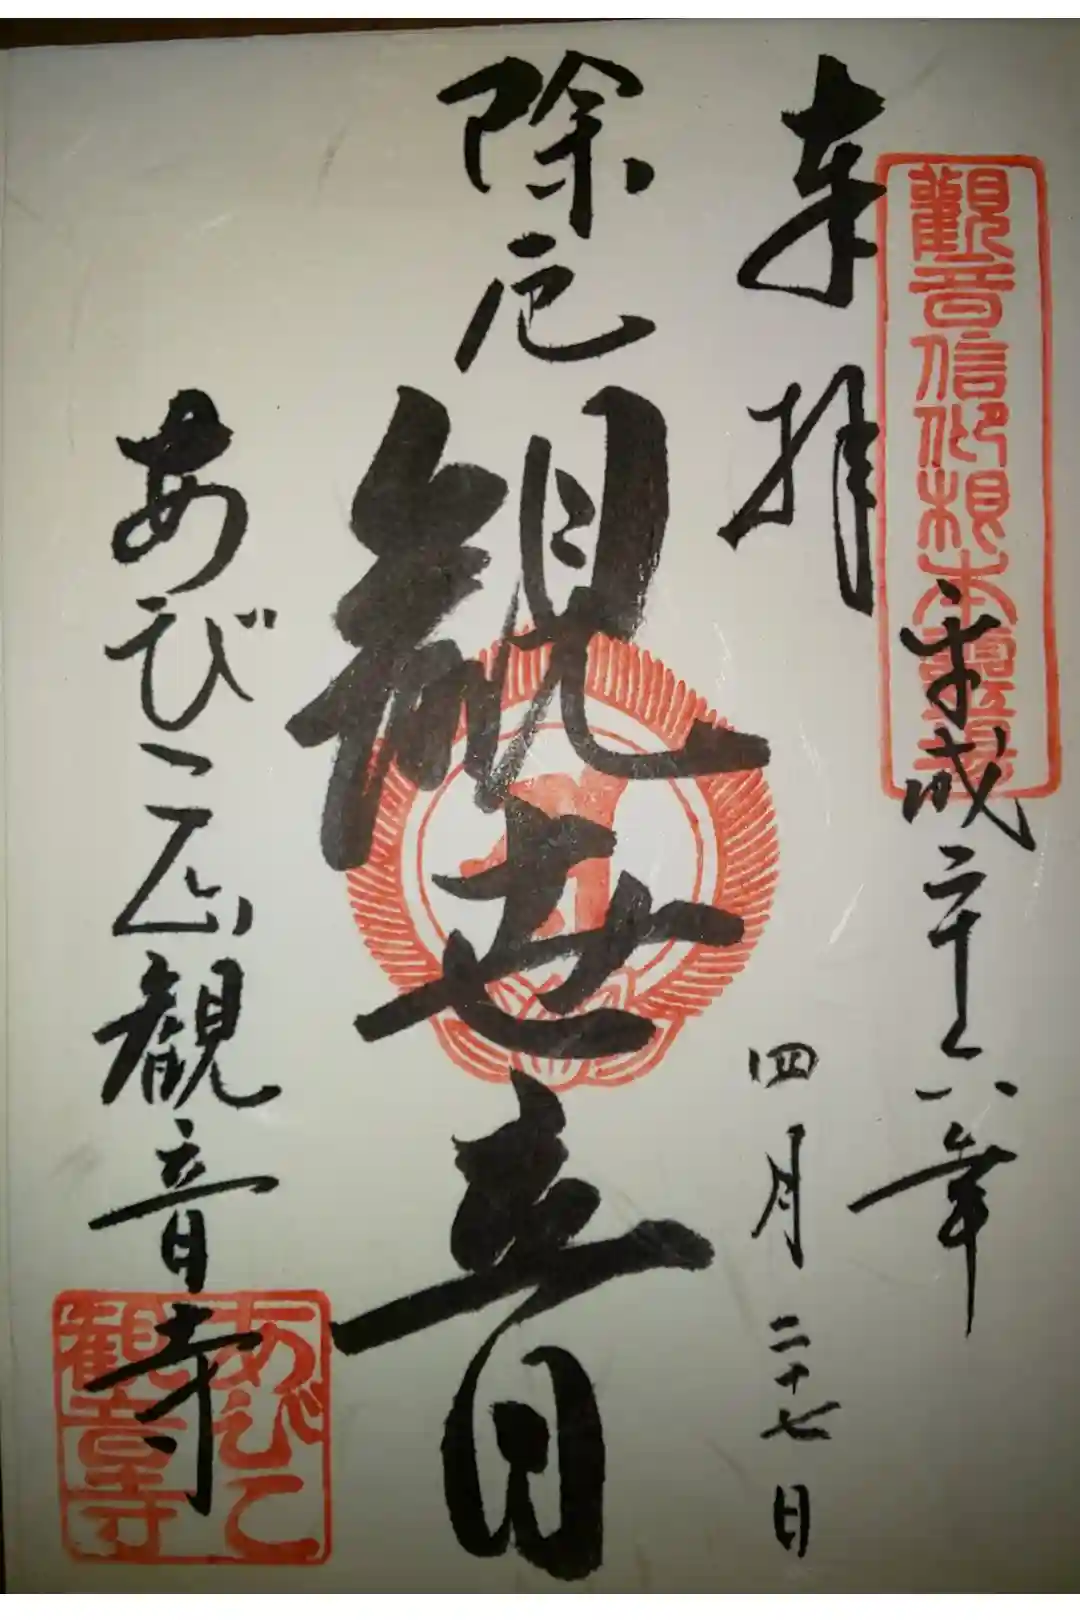 觀音信仰根本靈場
平成二十六年
奉拝
四月二十七日
除厄
観世音
あびこ山観音寺
あびこ
観音寺